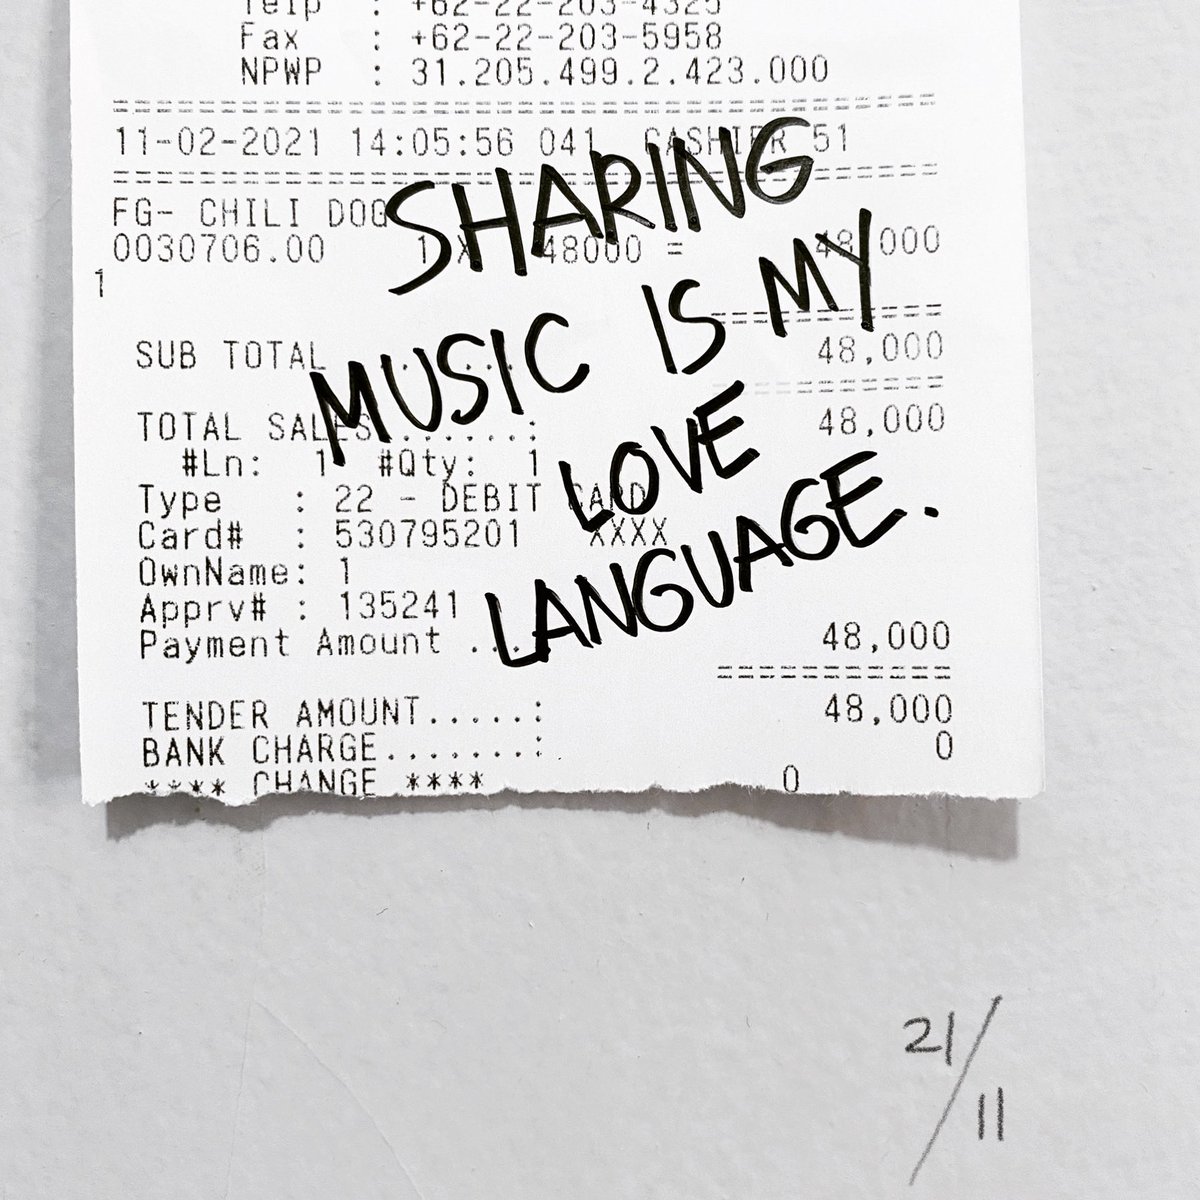 Telp : +62-22-203-4325
Fax : +62-22-203-5958
NPWP : 31.205.499.2.423.000
11-02-2021 14:05:56 041 CASHIER 51
FG- CHILI DOG
0030706.00 1 X 48000 = 48,000
1
SUB TOTAL ........ 48,000
TOTAL SALES.......: 48,000
#Ln: 1 #Qty: 1
Type : 22 - DEBIT CARD
Card# : 530795201 XXXX
OwnName: 1
Apprv# : 135241
Payment Amount ...: 48,000
TENDER AMOUNT.....: 48,000
BANK CHARGE.......: 0
**** CHANGE **** 0
SHARING
MUSIC IS MY
LOVE
LANGUAGE.
21/11